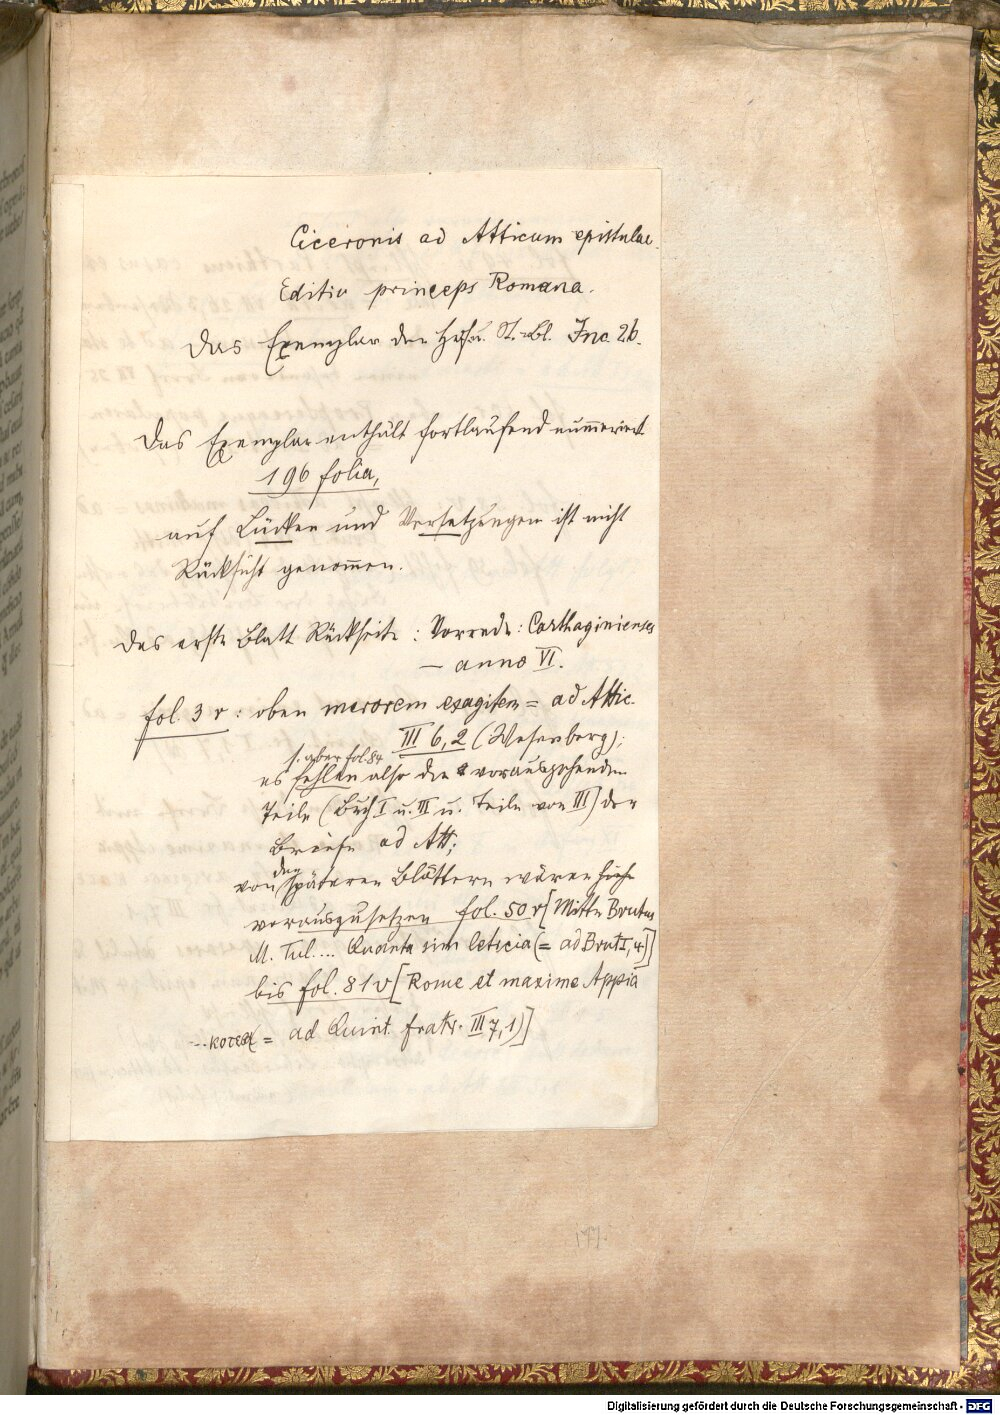 Ciceronis ad Atticum epistulae.
Editio princeps Romana.
Das Exemplar der Hof- u. St.-Bl. Inc. 26.
Das Exemplar enthält fortlaufend nummeriert
196 folia,
auf Lücken und Versetzungen ist nicht
Rücksicht genommen.
Das erste Blatt Rückseite: Vorrede: Carthaginienses
— anno VI.
fol. 3 r: oben merorem exagitem = ad Attic.
III 6,2 (Wesenberg);
s. aber fol. 84
es fehlen also die vorausgehenden
Teile (Buch I u. II u. Teile von III) der
Briefe ad Att;
von den späteren Blättern wären hieher
vorauszusetzen fol. 50 r [Mitte Brutus
M. Tul.... Quanta sim leticia (= ad Brut I, 4)]
bis fol. 81 v [Rome et maxime Appia
= ad Quint. fratr. III 7,1)]
191
Digitalisierung gefördert durch die Deutsche Forschungsgemeinschaft - DFG